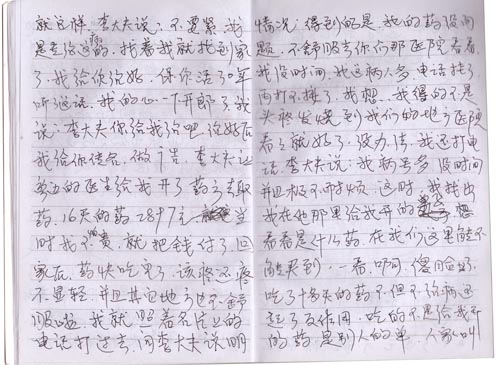 就这样,李大夫说:不要紧,我
是专治这病,找着我就找到家
了,我给你治好,保你活
听这话,我的心一下开朗了,我
说:李大夫你给我治吧,治好后
我给你传名,做广告,李大夫让
身边的医生给我开了药方去取
药,16天的药2897元 当
时我不嫌贵,就把钱付了回
家后,药快吃完了,该疼还疼
不显轻,并且其它地方也不舒
服,我就照着名片上的
电话打过去,问李大夫说明
情况,得到的是我的药没问
题,不舒服去你们那医院看看,
我没时间,我这病人多,电话挂了
再打不接了,我想,我得的不是
头疼发烧到我们的地方医院
看了就好了,没办法,我还打电
话,李大夫说:我病号多没时间
并且极不耐烦,这时,我找出
我在他那里给我开的 想
看看是什么药,在我们这里能不
能买到,一看,傻
吃了十多天的药不但不治病还
起了反作用,吃的不是给我开
的药是别人的单,人家叫